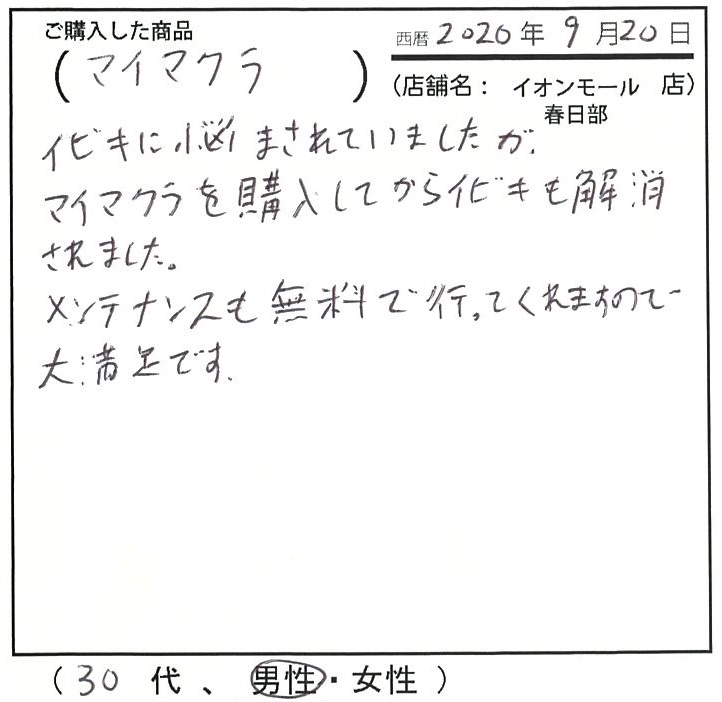 ご購入した商品
(マイマクラ)
西暦 2020年 9月20日
(店舗名： イオンモール 店)
春日部
イビキに悩まされていましたが、
マイマクラを購入してからイビキも解消
されました。
メンテナンスも無料で行ってくれますので
大満足です。
(30代、男性・女性)